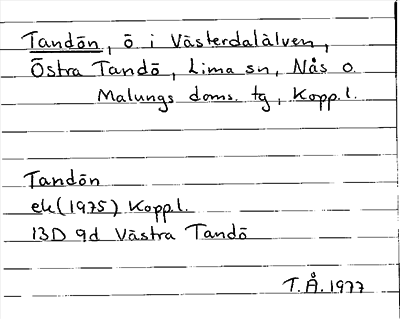 Tandön, ö i Västerdalälven,
Östra Tandö, Lima sn, Nås o.
Malungs doms. tg, Kopp.l.
Tandön
ek (1975) Kopp.l.
13D 9d Västra Tandö
T.Å. 1977